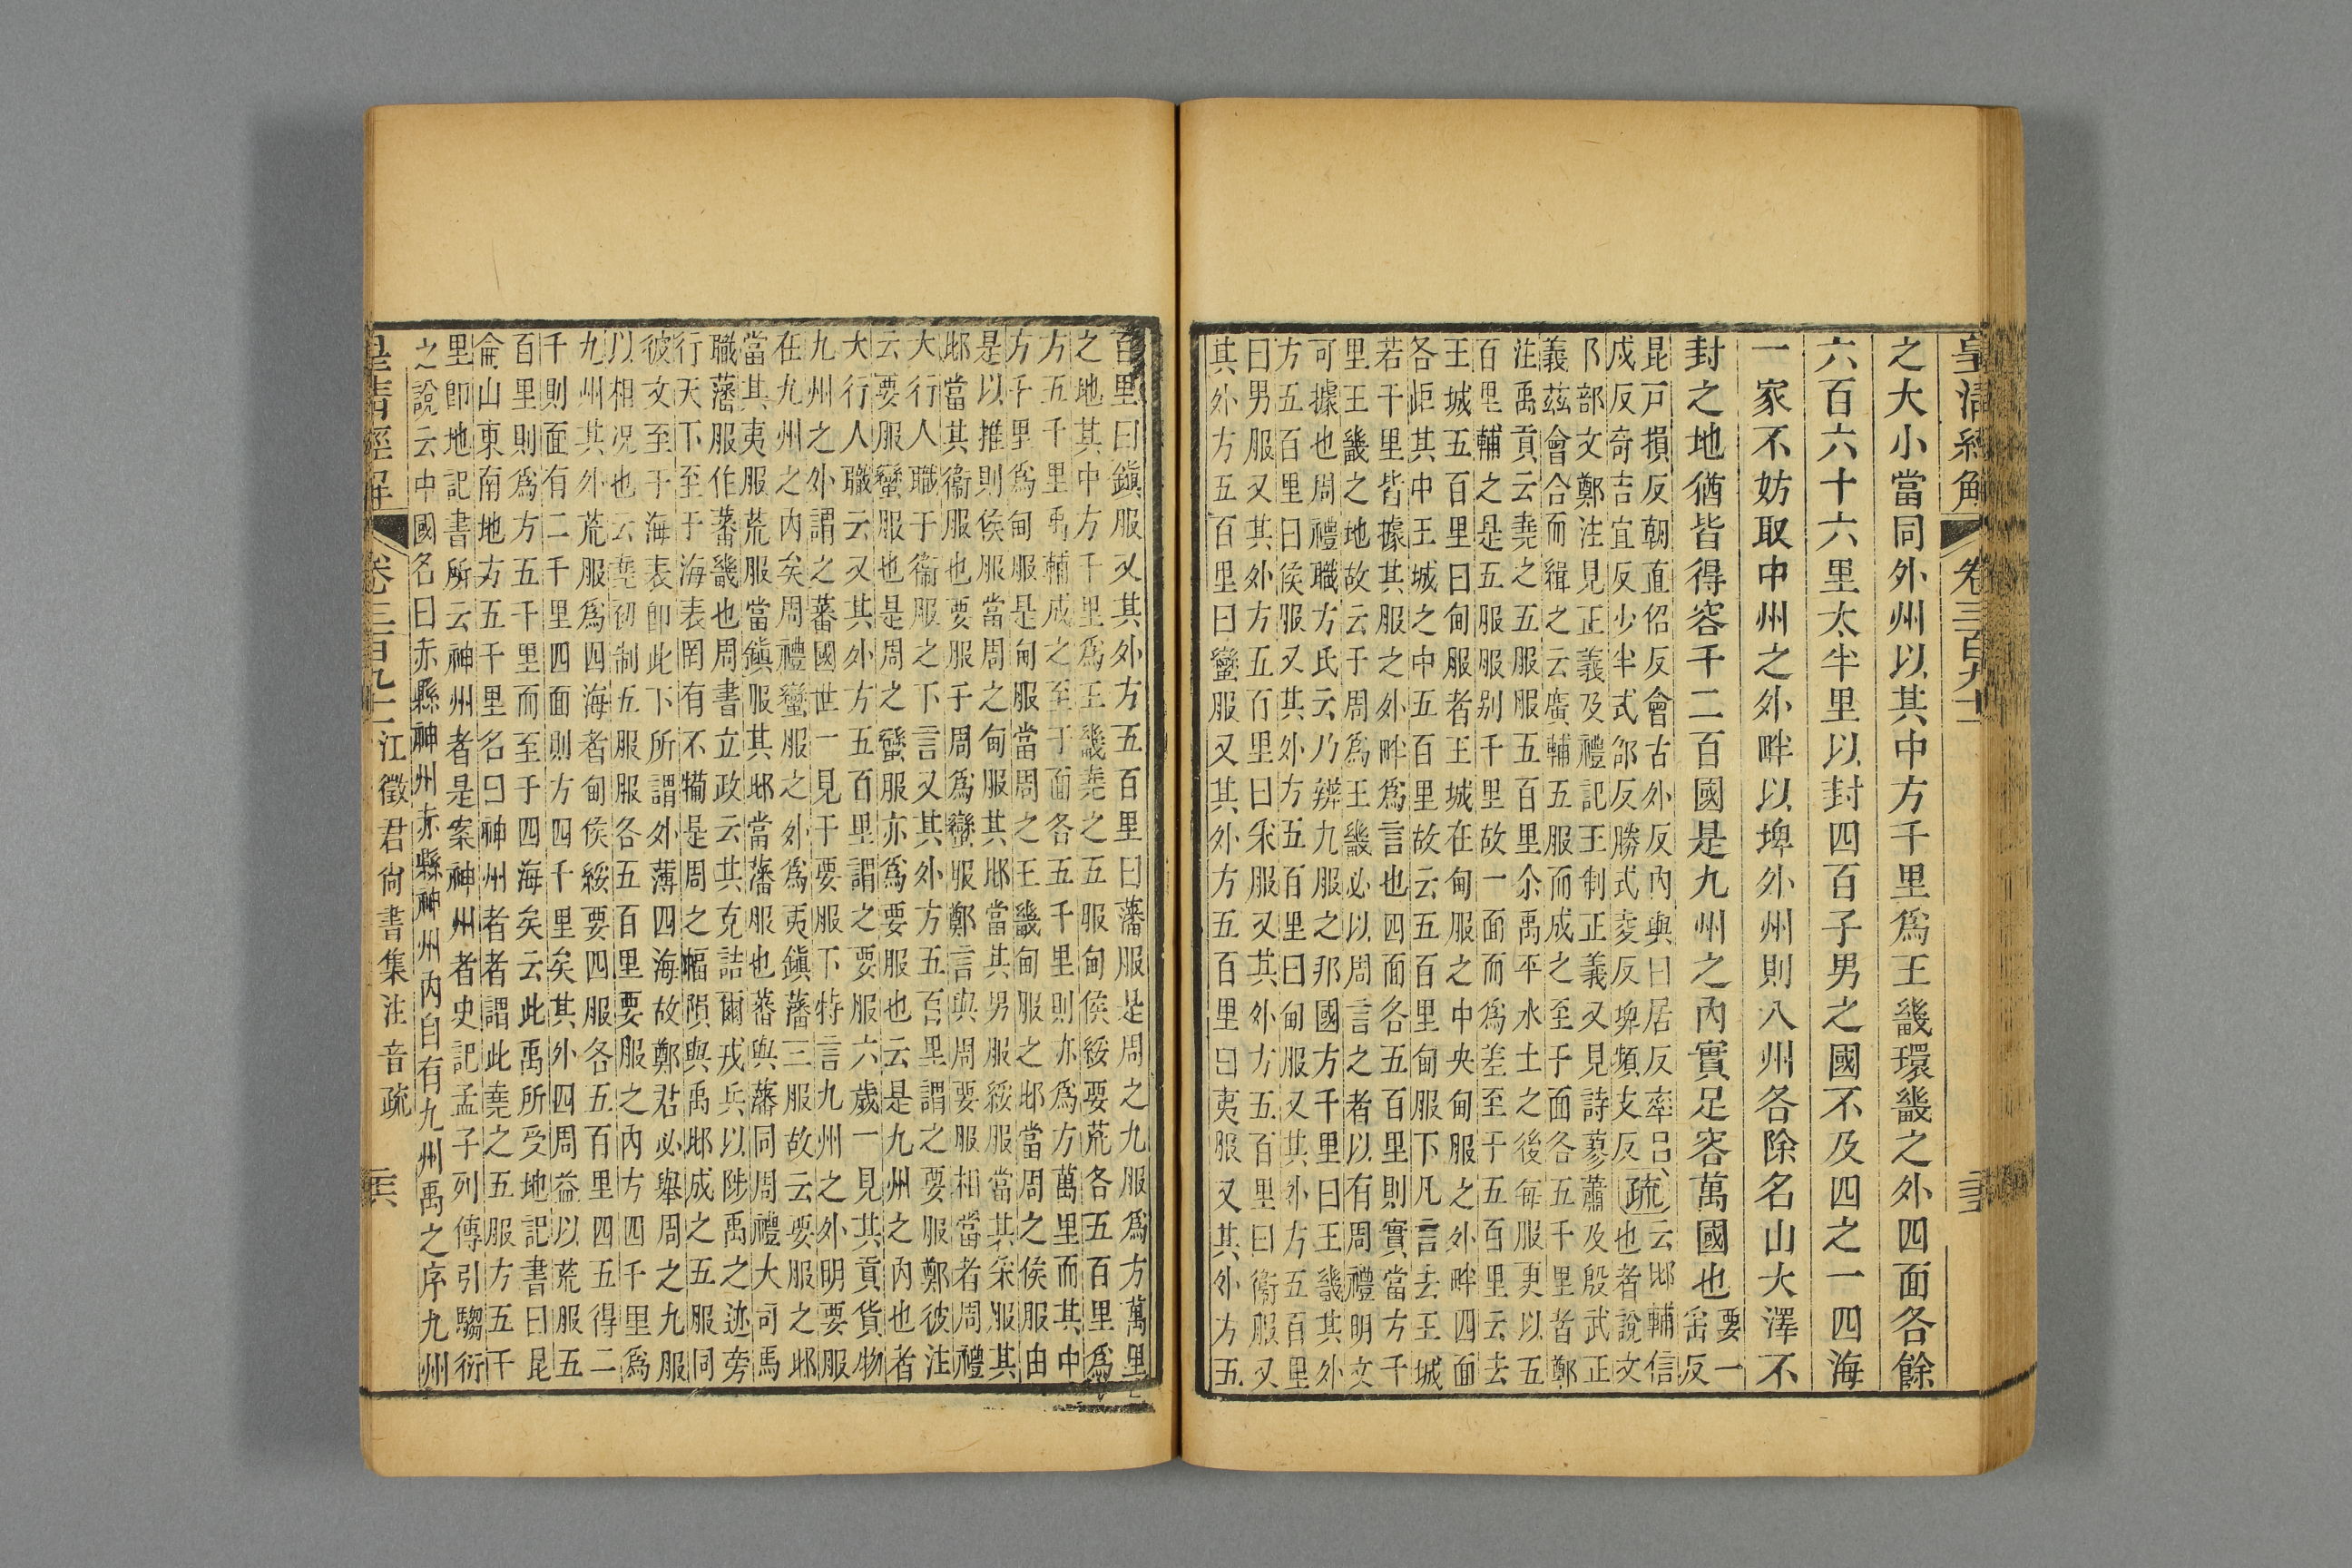 皇清經解 卷三百九十二
之大小當同外州以其中方千里爲王畿環畿之外四面各餘
六百六十六里太半里以封四百子男之國不及四之一四海
一家不妨取中州之外畔以埤外州則八州各除名山大澤不
封之地猶皆得容千二百國是九州之內實足容萬國也要一䍃反
昆戸損反朝直佋反會古外反內與曰居反率呂
戍反奇吉宜反少半式邵反勝式夌反埤頻支反疏云𠨒輔信也者說文
卪部文鄭注見正義及禮記王制正義又見詩蓼蕭及殷武正
義茲會合而緝之云廣輔五服而成之至于面各五千里者鄭
注禹貢云堯之五服服五百里尒禹平水土之後每服更以五
百里輔之是五服服別千里故一面而爲差至于五百里云去
王城五百里曰甸服者王城在甸服之中央甸服之外畔四面
各距其中王城之中五百里故云五百里甸服下凡言去王城
若干里皆據其服之外畔爲言也四面各五百里則實當方千
里王畿之地故云于周爲王畿必以周言之者以有周禮明文
可據也周禮職方氏云乃辨九服之邦國方千里曰王畿其外
方五百里曰侯服又其外方五百里曰甸服又其外方五百里
曰男服又其外方五百里曰采服又其外方五百里曰衞服又
其外方五百里曰蠻服又其外方五百里曰夷服又其外方五
百里曰鎭服又其外方五百里曰藩服是周之九服爲方萬里
之地其中方千里爲王畿堯之五服甸侯綏要荒各五百里爲
方五千里禹輔成之至于面各五千里則亦爲方萬里而其中
方千里爲甸服是甸服當周之王畿甸服之𠨒當周之侯服由
是以推則侯服當周之甸服其𠨒當其男服綏服當其采服其
𠨒當其衞服也要服于周爲蠻服鄭言與周要服相當者周禮
大行人職于衞服之下言又其外方五百里謂之要服鄭彼注
云要服蠻服也是周之蠻服亦爲要服也云是九州之內也者
大行人職云又其外方五百里謂之要服六歲一見其貢貨物
九州之外謂之蕃國世一見于要服下特言九州之外明要服
在九州之內矣周禮蠻服之外爲夷鎭藩三服故云要服之𠨒
當其夷服荒服當鎭服其𠨒當藩服也蕃與藩同周禮大司馬
職藩服作蕃畿也周書立政云其克詰爾戎兵以陟禹之迹旁
行天下至于海表罔有不犕是周之幅隕與禹𠨒成之五服同
彼文至于海表卽此下所謂外薄四海故鄭君必舉周之九服
以相况也云堯初制五服服各五百里要服之內方四千里爲
九州其外荒服爲四海者甸侯綏要四服各五百里四五得二
千則面有二千里四面則方四千里矣其外四周益以荒服五
百里則爲方五千里而至于四海矣云此禹所受地記書曰昆
侖山東南地方五千里名曰神州者者謂此堯之五服方五千
里卽地記書所云神州者是案神州者史記孟子列傳引騶衍
之說云中國名曰赤縣神州赤縣神州內自有九州禹之序九州
皇清經解 卷三百九十二 江徵君尙書集注音疏